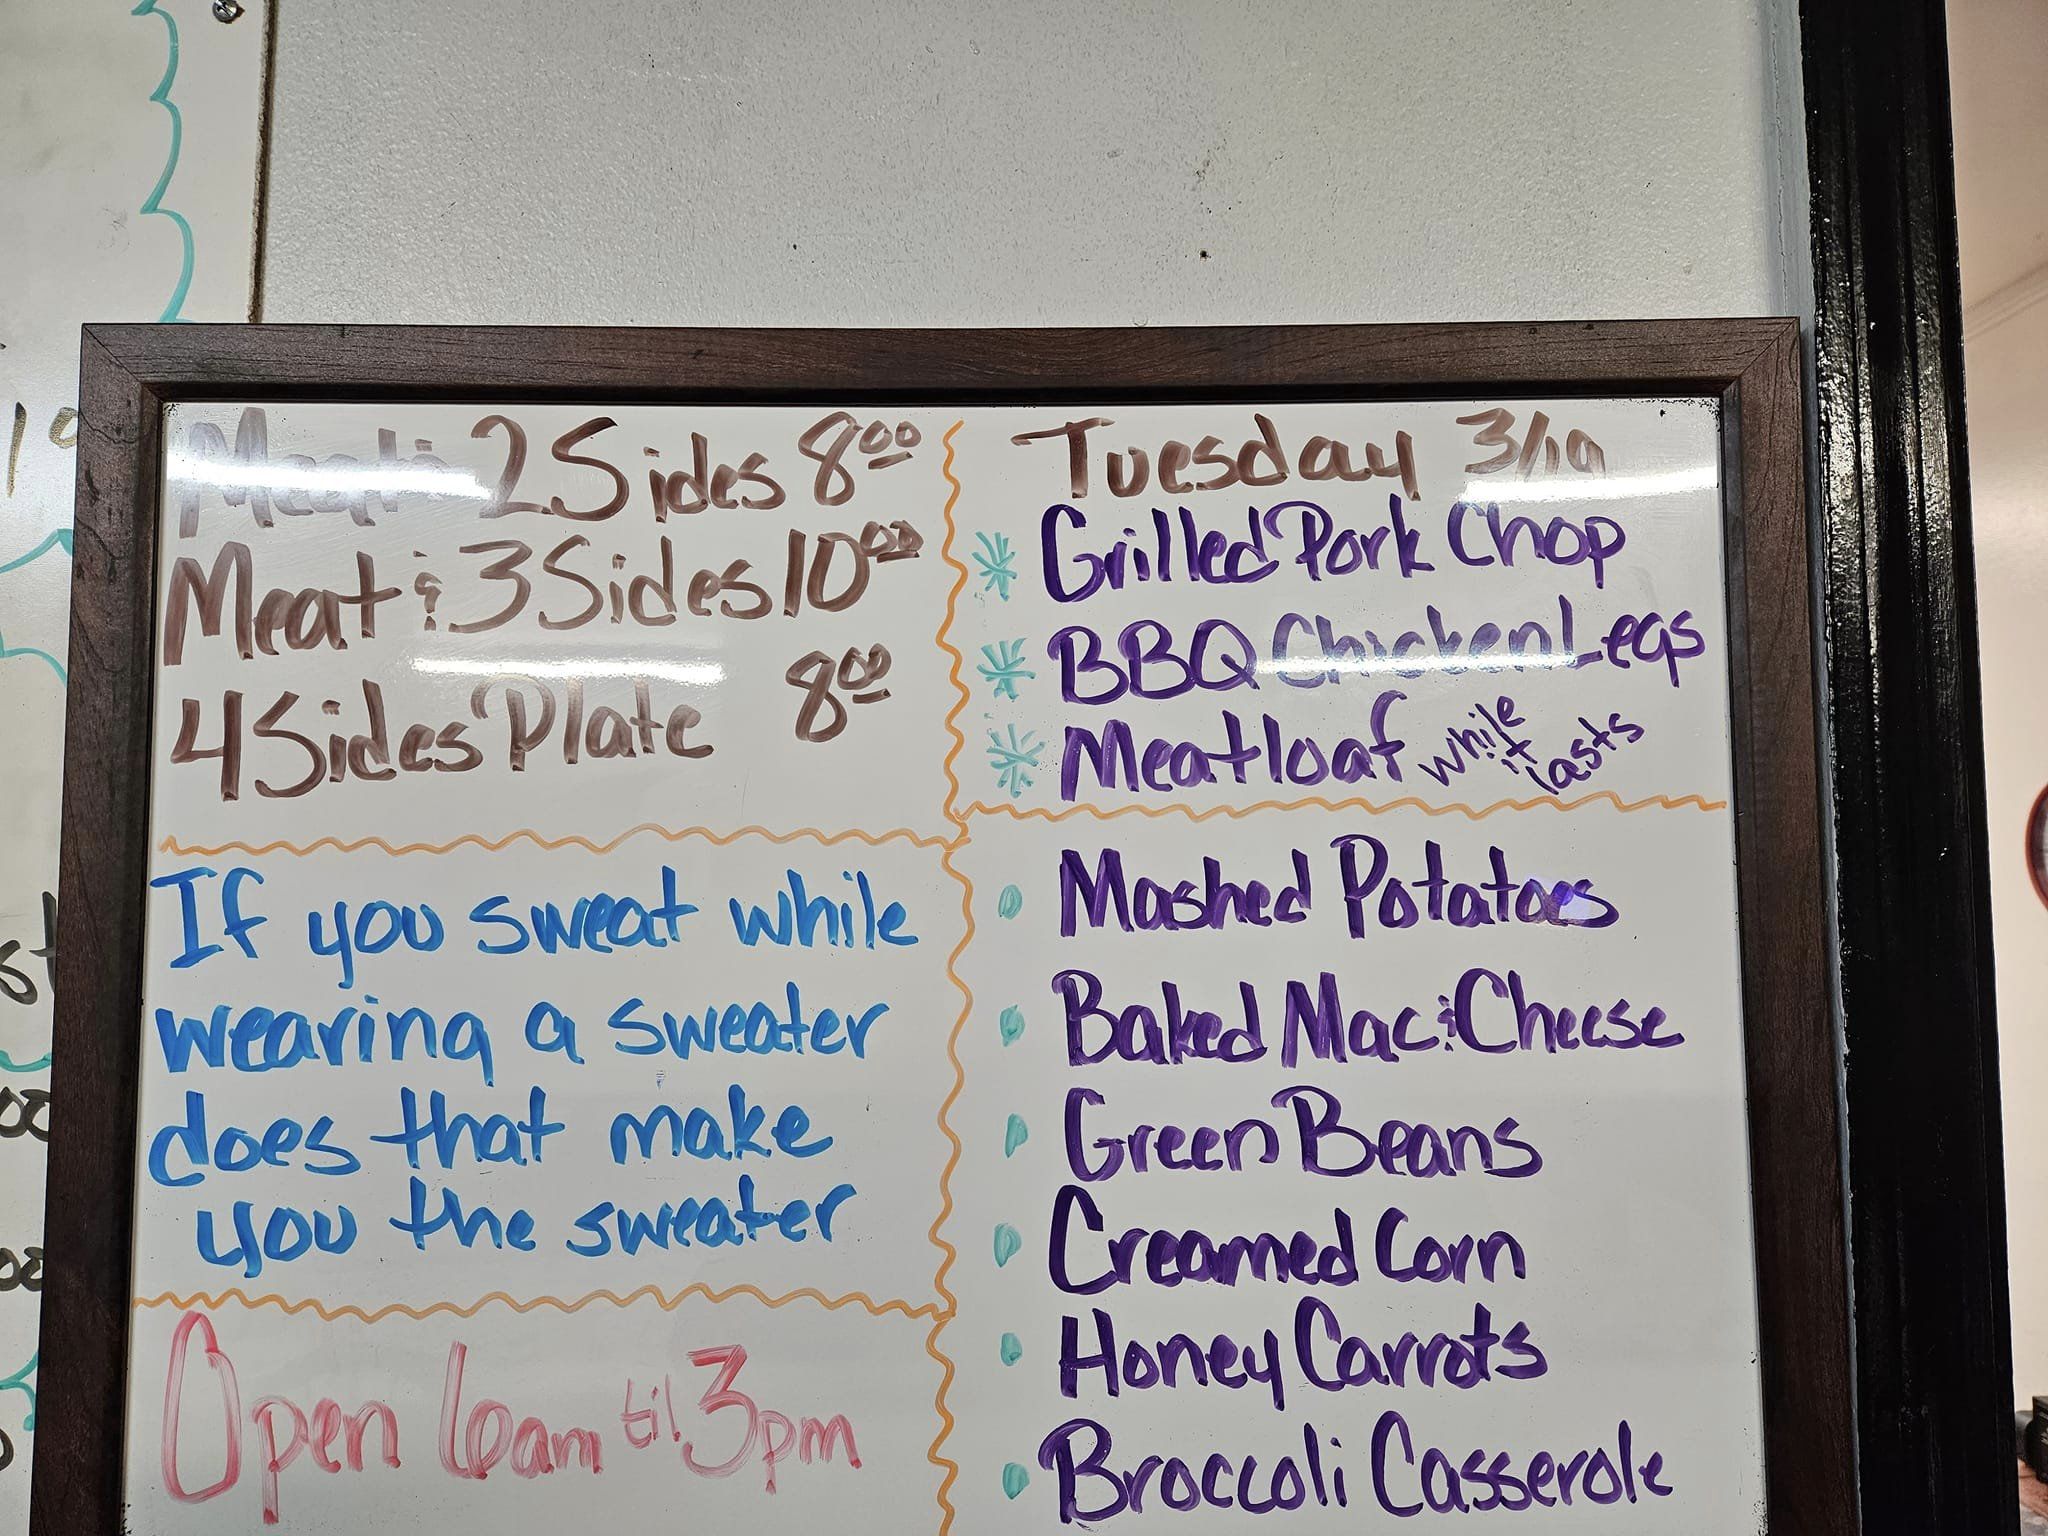 Meat & 2 Sides 8.00
Meat & 3 Sides 10.00
4 Sides Plate 8.00
If you sweat while
wearing a sweater
does that make
you the sweater
Open 6am til 3pm
Tuesday 3/19
Grilled Pork Chop
BBQ Chicken Legs
Meatloaf while it lasts
Mashed Potatoes
Baked Mac & Cheese
Green Beans
Creamed Corn
Honey Carrots
Broccoli Casserole